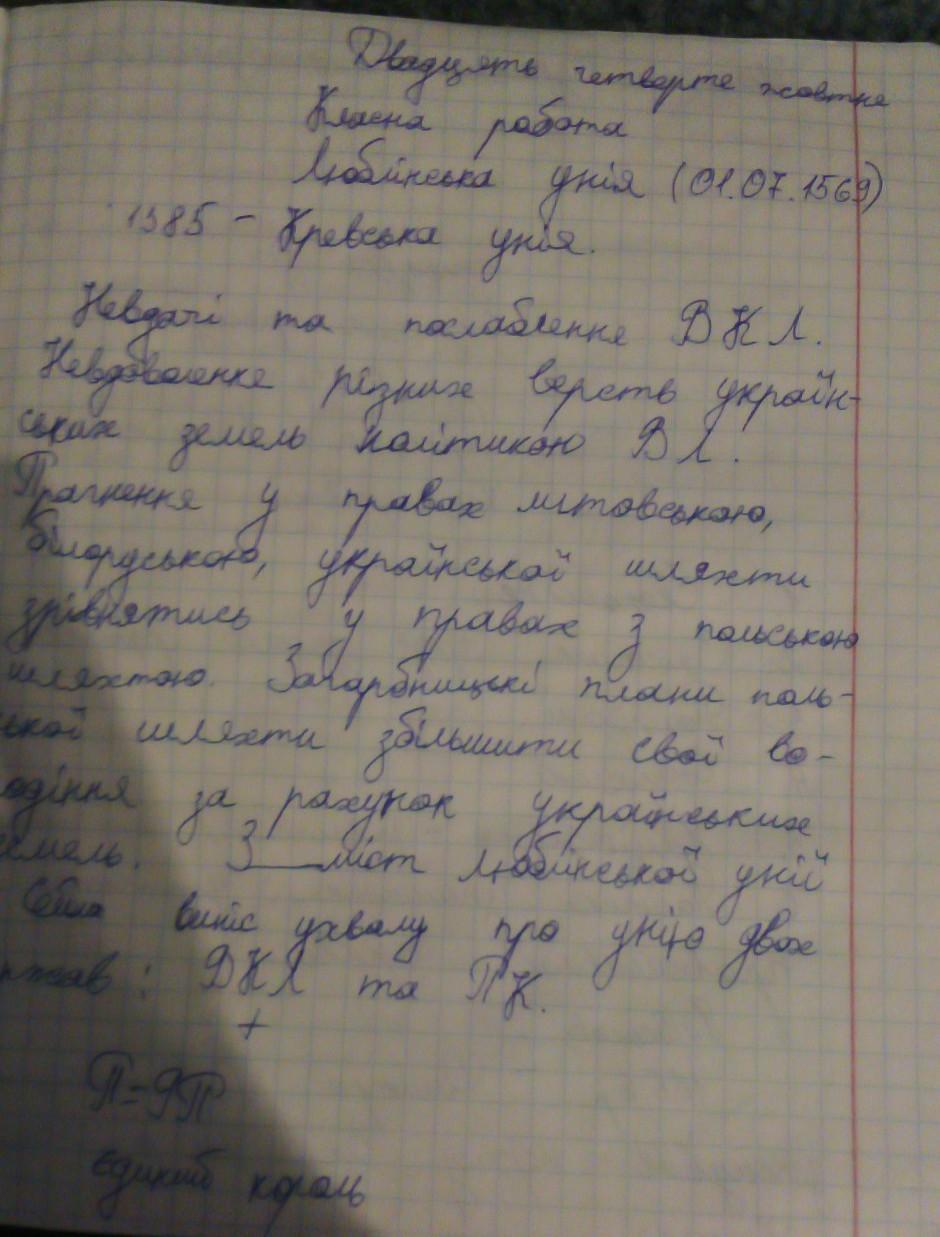 Двадцять четверте жовтня
Класна робота
Люблінська унія (01.07.1569)
1385 - Кревська унія.
Невдачі та послаблення ВКЛ.
Невдоволення різних верств україн-
ських земель політикою ВЛ.
Прагнення у правах литовською,
білоруською, української шляхти
зрівнятись у правах з польською
шляхтою. Загарбницькі плани поль-
ської шляхти збільшити свої во-
одіння за рахунок українських
земель. Зміст Люблінської унії
Сейм виніс ухвалу про унію двох
ржав: ВКЛ та ПК.
+
П=РП
єдиний король